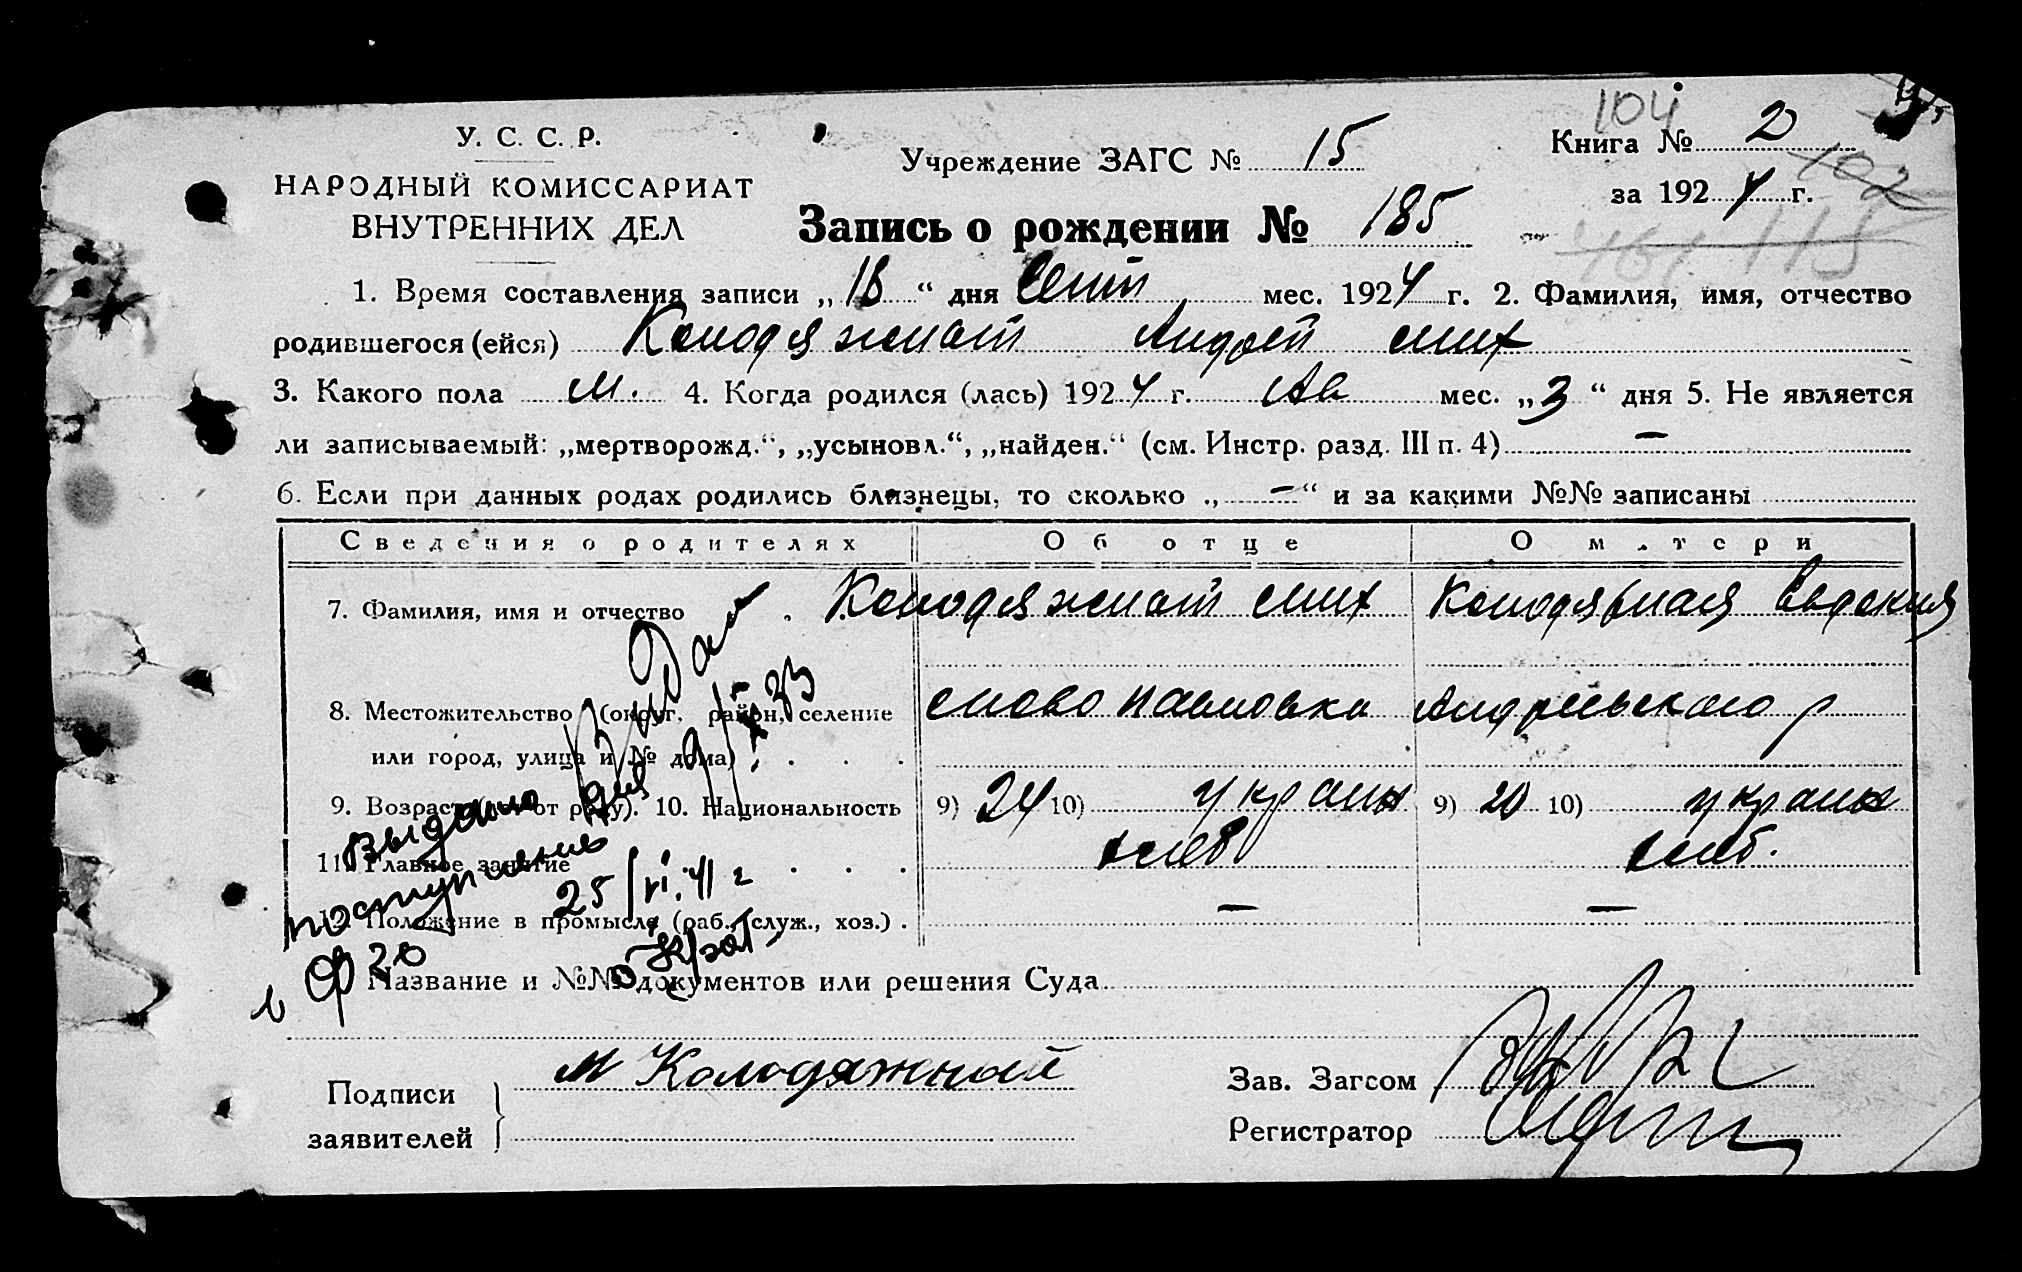 У. С. С. Р.
НАРОДНЫЙ КОМИССАРИАТ
ВНУТРЕННИХ ДЕЛ
Учреждение ЗАГС № 15
104
Книга № 2
за 1924 г.
102
Запись о рождении № 185
115
1. Время составления записи „18“ дня Сент мес. 1924 г. 2. Фамилия, имя, отчество
родившегося (ейся) Колодяжный Андрей мих
3. Какого пола м. 4. Когда родился (лась) 1924 г. Ав мес. „3“ дня 5. Не является
ли записываемый: „мертворожд.“, „усыновл.“, „найден.“ (см. Инстр. разд. III п. 4) —
6. Если при данных родах родились близнецы, то сколько „—“ и за какими №№ записаны
Сведения о родителях Об отце О матери
7. Фамилия, имя и отчество . Колодяжный мих Колодяжная Евдокия
8. Местожительство (округ, район, селение Павловка Андреевского р
или город, улица и № дома) . . .
9. Возраст (лет от роду). 10. Национальность 9) 24 10) украин 9) 20 10) украин
11. Главное занятие . . . хлеб хлеб.
12. Положение в промысле (раб., служ., хоз.) . — —
Выдано для
поступления
в Ф 20
25/VI.41 г
Название и №№ документов или решения Суда
Подписи
заявителей
м Колодяжный
Зав. Загсом
Регистратор